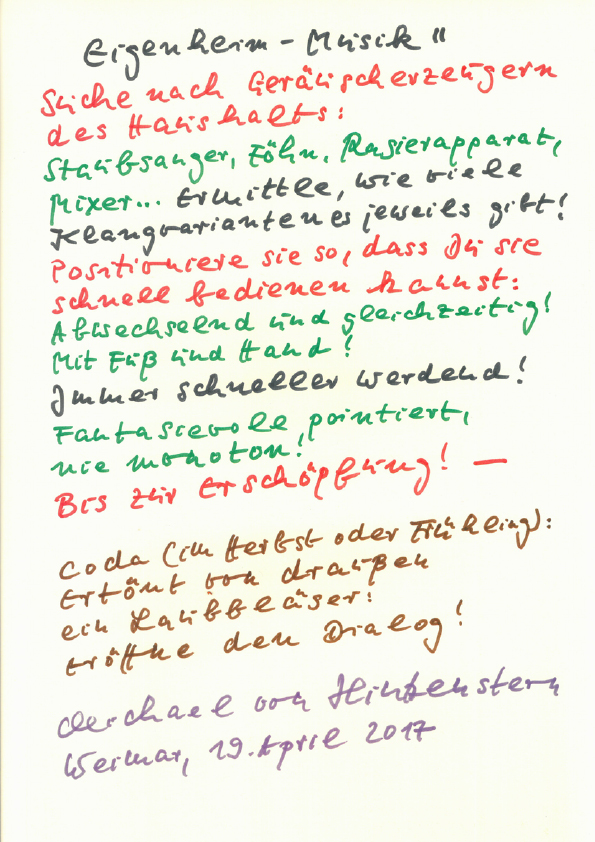 Eigenheim - Musik"
Suche nach Geräuscherzeugern
des Haushalts:
Staubsauger, Föhn, Rasierapparat,
Mixer... Ermittle, wie viele
Klangvarianten es jeweils gibt!
Positioniere sie so, dass Du sie
schnell bedienen kannst:
Abwechselnd und gleichzeitig!
Mit Fuß und Hand!
Immer schneller werdend!
Fantasievoll pointiert,
nie monoton!
Bis zur Erschöpfung! —
Coda (im Herbst oder Frühling):
Ertönt von draußen
ein Laubbläser:
Eröffne den Dialog!
Michael von Hintzenstern
Weimar, 19. April 2017